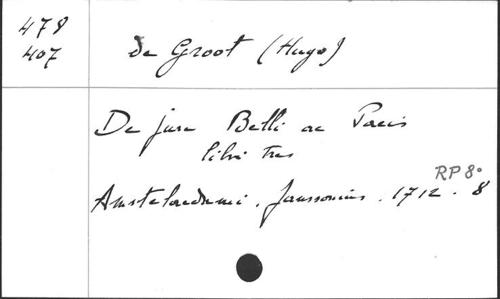 478
407
De Groot (Hugo)
De jure Belli ac Pacis
libri tres
RP 8°
Amstelaedami. Janssonius. 1712. 8